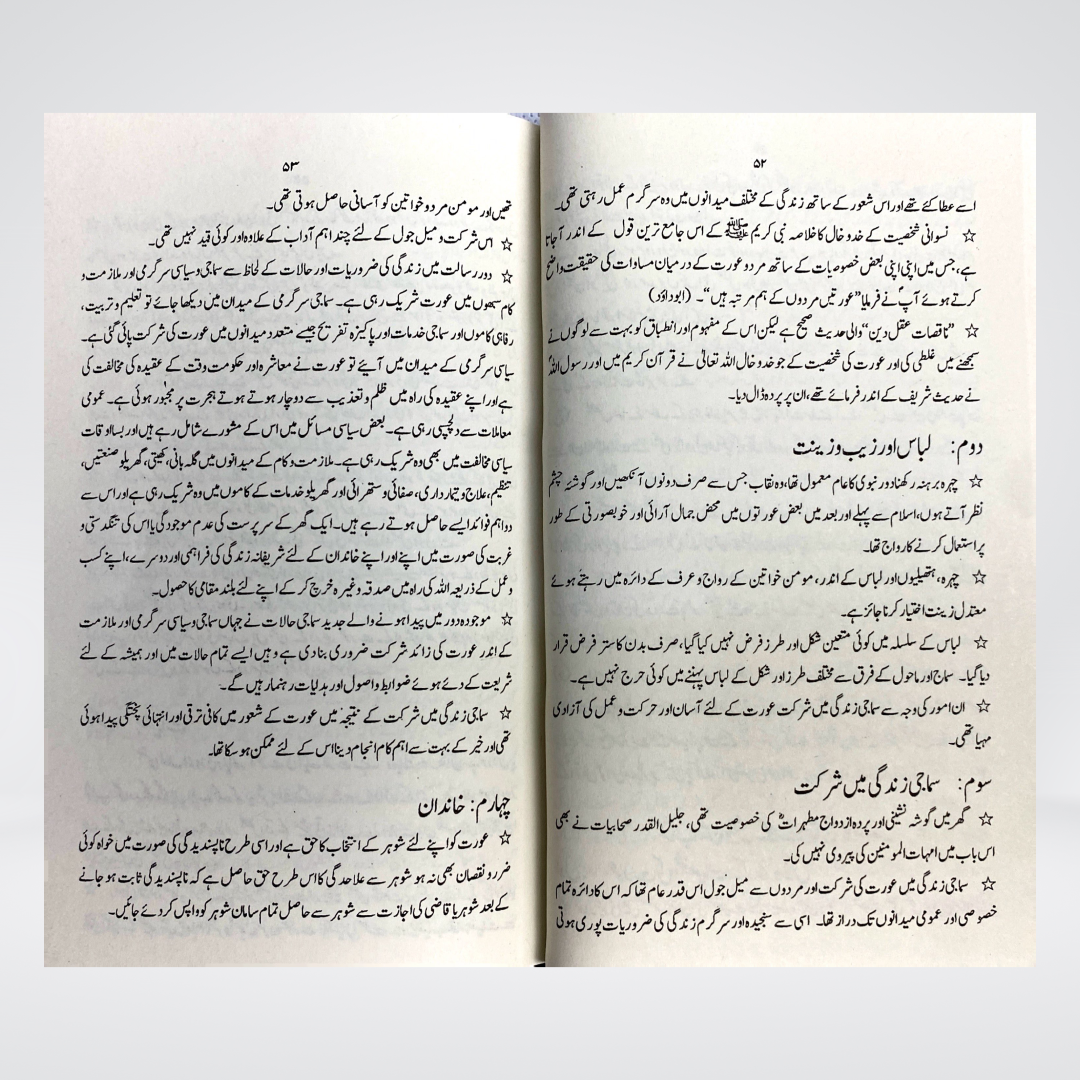 ۵۲
اسے عطا کئے تھے اور اس شعور کے ساتھ زندگی کے مختلف میدانوں میں وہ سرگرم عمل رہتی تھی۔
☆ نسوانی شخصیت کے خدوخال کا خلاصہ نبی کریم ﷺ کے اس جامع ترین قول کے اندر آجاتا
ہے، جس میں اپنی اپنی بعض خصوصیات کے ساتھ مرد و عورت کے درمیان مساوات کی حقیقت واضح
کرتے ہوئے آپؐ نے فرمایا ”عورتیں مردوں کے ہم مرتبہ ہیں“۔ (ابوداؤد)
☆ ”ناقصات عقل دین“ والی حدیث صحیح ہے لیکن اس کے مفہوم اور انطباق کو بہت سے لوگوں نے
سمجھنے میں غلطی کی اور عورت کی شخصیت کے جو خدوخال اللہ تعالیٰ نے قرآن کریم میں اور رسول اللہؐ
نے حدیث شریف کے اندر فرمائے تھے، ان پر پردہ ڈال دیا۔
دوم: لباس اور زیب و زینت
☆ چہرہ برہنہ رکھنا دور نبوی کا عام معمول تھا، وہ نقاب جس سے صرف دونوں آنکھیں اور گوشۂ چشم
نظر آتے ہوں، اسلام سے پہلے اور بعد میں بعض عورتوں میں محض جمال آرائی اور خوبصورتی کے طور
پر استعمال کرنے کا رواج تھا۔
☆ چہرہ، ہتھیلیوں اور لباس کے اندر، مومن خواتین کے رواج و عرف کے دائرہ میں رہتے ہوئے
معتدل زینت اختیار کرنا جائز ہے۔
☆ لباس کے سلسلہ میں کوئی متعین شکل اور طرز فرض نہیں کیا گیا، صرف بدن کا ستر فرض قرار
دیا گیا۔ سماج اور ماحول کے فرق سے مختلف طرز اور شکل کے لباس پہننے میں کوئی حرج نہیں ہے۔
☆ ان امور کی وجہ سے سماجی زندگی میں شرکت عورت کے لئے آسان اور حرکت و عمل کی آزادی
مہیا تھی۔
سوم: سماجی زندگی میں شرکت
☆ گھر میں گوشہ نشینی اور پردہ ازدواج مطہراتؓ کی خصوصیت تھی، جلیل القدر صحابیات نے بھی
اس باب میں امہات المومنین کی پیروی نہیں کی۔
☆ سماجی زندگی میں عورت کی شرکت اور مردوں سے میل جول اس قدر عام تھا کہ اس کا دائرہ تمام
خصوصی اور عمومی میدانوں تک دراز تھا۔ اسی سے سنجیدہ اور سرگرم زندگی کی ضروریات پوری ہوتی
۵۳
تھیں اور مومن مرد و خواتین کو آسانی حاصل ہوتی تھی۔
☆ اس شرکت و میل جول کے لئے چند اہم آداب کے علاوہ اور کوئی قید نہیں تھی۔
☆ دور رسالت میں زندگی کی ضروریات اور حالات کے لحاظ سے سماجی و سیاسی سرگرمی اور ملازمت و
کام سبھوں میں عورت شریک رہی ہے۔ سماجی سرگرمی کے میدان میں دیکھا جائے تو تعلیم و تربیت،
رفاہی کاموں اور سماجی خدمات اور پاکیزہ تفریح جیسے متعدد میدانوں میں عورت کی شرکت پائی گئی ہے۔
سیاسی سرگرمی کے میدان میں آیئے تو عورت نے معاشرہ اور حکومت وقت کے عقیدہ کی مخالفت کی
ہے اور اپنے عقیدہ کی راہ میں ظلم و تعذیب سے دوچار ہوتے ہوتے ہجرت پر مجبور ہوئی ہے۔ عمومی
معاملات سے دلچسپی رہی ہے۔ بعض سیاسی مسائل میں اس کے مشورے شامل رہے ہیں اور بسا اوقات
سیاسی مخالفت میں بھی وہ شریک رہی ہے۔ ملازمت و کام کے میدانوں میں گلہ بانی، کھیتی، گھریلو صنعتیں،
تنظیم، علاج و تیمارداری، صفائی و ستھرائی اور گھریلو خدمات کے کاموں میں وہ شریک رہی ہے اور اس سے
دو اہم فوائد ایسے حاصل ہوتے رہے ہیں۔ ایک گھر کے سرپرست کی عدم موجودگی یا اس کی تنگدستی و
غربت کی صورت میں اپنے اور اپنے خاندان کے لئے شریفانہ زندگی کی فراہمی اور دوسرے، اپنے کسب
و عمل کے ذریعہ اللہ کی راہ میں صدقہ وغیرہ خرچ کر کے اپنے لئے بلند مقامی کا حصول۔
☆ موجودہ دور میں پیدا ہونے والے جدید سماجی حالات نے جہاں سماجی و سیاسی سرگرمی اور ملازمت
کے اندر عورت کی زائد شرکت ضروری بنادی ہے وہیں ایسے تمام حالات میں اور ہمیشہ کے لئے
شریعت کے دئے ہوئے ضوابط و اصول اور ہدایات رہنما رہیں گے۔
☆ سماجی زندگی میں شرکت کے نتیجہ میں عورت کے شعور میں کافی ترقی اور انتہائی پختگی پیدا ہوئی
تھی اور خیر کے بہت سے اہم کام انجام دینا اس کے لئے ممکن ہوسکا تھا۔
چہارم: خاندان
☆ عورت کو اپنے لئے شوہر کے انتخاب کا حق ہے اور اسی طرح ناپسندیدگی کی صورت میں خواہ کوئی
ضرر و نقصان بھی نہ ہو شوہر سے علاحدگی کا اس طرح حق حاصل ہے کہ ناپسندیدگی ثابت ہوجانے
کے بعد شوہر یا قاضی کی اجازت سے شوہر سے حاصل تمام سامان شوہر کو واپس کردئے جائیں۔